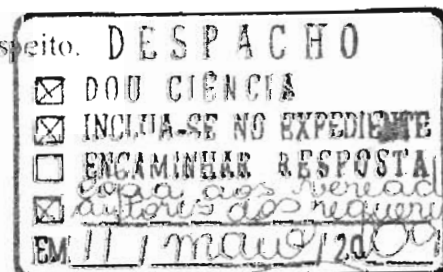 speito. DESPACHO
☒ DOU CIÊNCIA
☒ INCLUA-SE NO EXPEDIENTE
☐ ENCAMINHAR RESPOSTA
☒ copia aos veread
autores dos requeri
EM 11 / maio / 2009